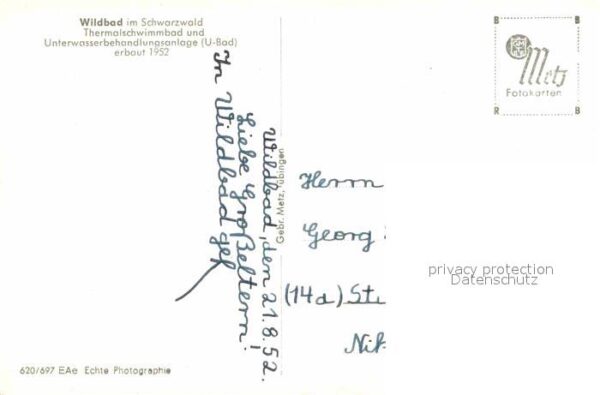 Wildbad im Schwarzwald
Thermalschwimmbad und
Unterwasserbehandlungsanlage (U-Bad)
erbaut 1952
Wildbad, den 21.8.52.
Liebe Großeltern!
In Wildbad gef
Gebr. Metz, Tübingen
B B
Metz
Fotokarten
R B
Herrn
Georg
(14a) Stu
Nik
privacy protection
Datenschutz
620/697 EAe Echte Photographie